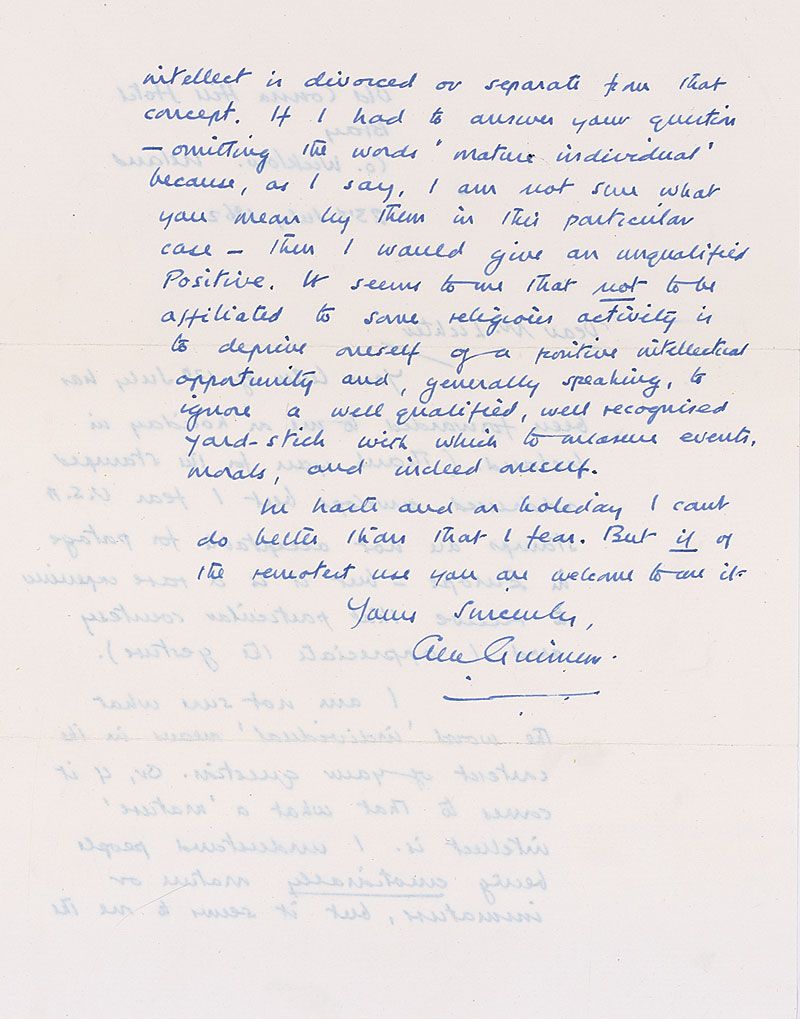 intellect is divorced or separate from that
concept. If I had to answer your question
– omitting the words 'mature individual'
because, as I say, I am not sure what
you mean by them in this particular
case – then I would give an unqualified
Positive. It seems to me that not to be
affiliated to some religious activity is
to deprive oneself of a positive intellectual
opportunity and, generally speaking, to
ignore a well qualified, well recognised
yard-stick with which to measure events,
morals, and indeed oneself.
In haste and on holiday I cant
do better than that I fear. But if of
the remotest use you are welcome to use it.
Yours Sincerely,
Alec Guinness.